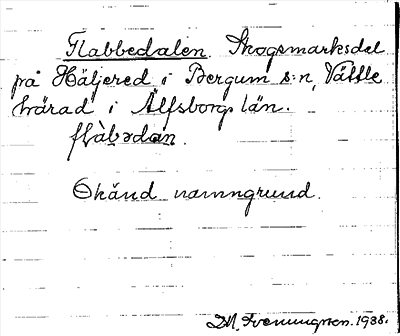 Flabbedalen. Skogsmarksdel
på Häljered i Bergum s:n, Vättle
härad i Älfsborgs län.
flàbədàn.
Okänd namngrund.
1938.